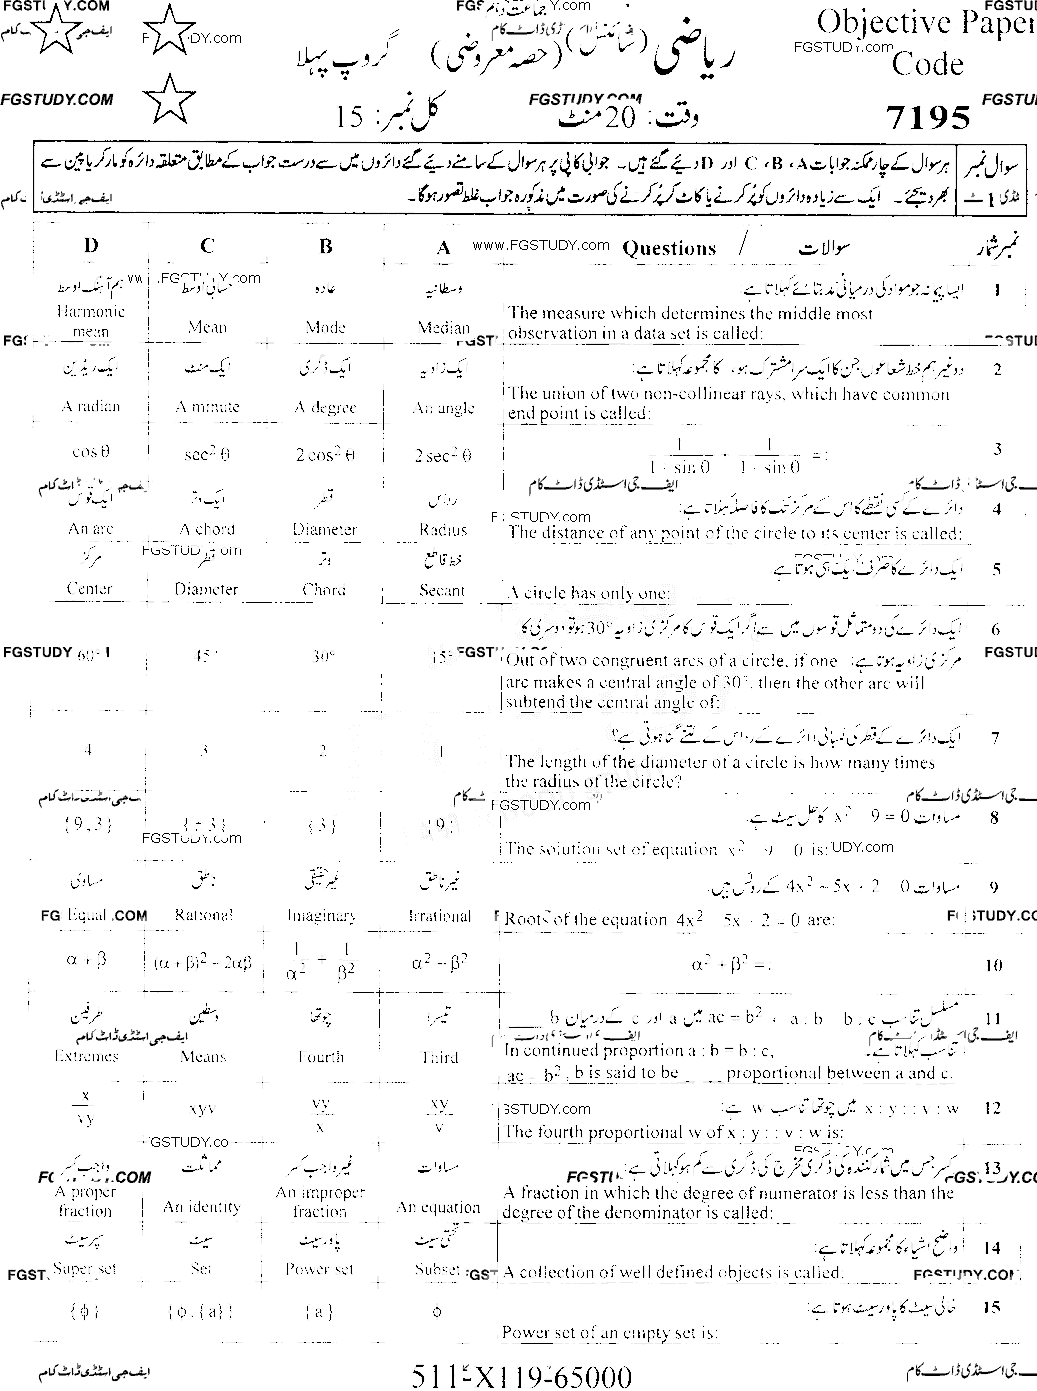 Objective Paper
Code
7195
ریاضی (سائنس) (حصہ معروضی) گروپ پہلا
وقت: 20 منٹ
کل نمبر: 15
سوال نمبر 1
ہر سوال کے چار ممکنہ جوابات A ، B ، C اور D دیئے گئے ہیں۔ جوابی کاپی پر ہر سوال کے سامنے دیئے گئے دائروں میں سے درست جواب کے مطابق متعلقہ دائرہ کو مارکر یا پین سے
بھر دیجئے۔ ایک سے زیادہ دائروں کو پُر کرنے یا کاٹ کر پُر کرنے کی صورت میں مذکورہ جواب غلط تصور ہوگا۔
D C B A www.FGSTUDY.com Questions / سوالات نمبر شمار
1 ایسا پیمانہ جو مواد کی درمیانی مد بتائے کہلاتا ہے:
ہم آہنگ اوسط حسابی اوسط عادہ وسطانیہ
The measure which determines the middle most
observation in a data set is called:
Harmonic mean Mean Mode Median
2 دو غیر ہم خط شعاعوں جن کا ایک سرا مشترک ہو، کا مجموعہ کہلاتا ہے:
ایک ریڈین ایک منٹ ایک ڈگری ایک زاویہ
The union of two non-collinear rays, which have common
end point is called:
A radian A minute A degree An angle
3
cos θ sec² θ 2 cos² θ 2 sec² θ
4 دائرے کے کسی نقطے کا اس کے مرکز تک کا فاصلہ کہلاتا ہے:
ایک قوس ایک وتر قطر رداس
The distance of any point of the circle to its center is called:
An arc A chord Diameter Radius
5 ایک دائرے کا صرف ایک ہی ہوتا ہے
مرکز قطر وتر خط قاطع
A circle has only one:
Center Diameter Chord Secant
6 ایک دائرے کی دو متماثل قوسوں میں سے اگر ایک قوس کا مرکزی زاویہ 30° ہو تو دوسری کا
مرکزی زاویہ ہوتا ہے:
Out of two congruent arcs of a circle, if one
arc makes a central angle of 30°, then the other arc will
subtend the central angle of:
60° 45° 30° 15°
7 ایک دائرے کے قطر کی لمبائی دائرے کے رداس کے کتنے گنا ہوتی ہے؟
The length of the diameter of a circle is how many times
the radius of the circle?
4 3 2 1
8 مساوات x² 9 = 0 کا حل سیٹ ہے۔
The solution set of equation x² 9 0 is:
{9,3} {±3} {3} {9}
9 مساوات 4x² - 5x + 2 0 کے روٹس ہیں۔
مساوی ناطق غیر حقیقی غیر ناطق
Roots of the equation 4x² 5x + 2 = 0 are:
Equal Rational Imaginary Irrational
10 α² + β² =:
α + β (α + β)² - 2αβ 1/α² + 1/β² α² - β²
11 مسلسل تناسب a : b b : c ، ac = b² میں a اور c کے درمیان b ____
تناسب کہلاتا ہے۔
طرفین وسطین چوتھا تیسرا
In continued proportion a : b = b : c,
ac = b², b is said to be ____ proportional between a and c.
Extremes Means Fourth Third
12 x : y : : v : w میں چوتھا تناسب w ہے:
The fourth proportional w of x : y : : v : w is:
x/vy xyv vy/x xy/v
13 کسر جس میں شمار کنندہ کی ڈگری مخرج کی ڈگری سے کم ہو کہلاتی ہے:
واجب کسر مماثلت غیر واجب کسر مساوات
A fraction in which the degree of numerator is less than the
degree of the denominator is called:
A proper fraction An identity An improper fraction An equation
14 واضح اشیاء کا مجموعہ کہلاتا ہے:
سپر سیٹ سیٹ پاور سیٹ تحتی سیٹ
A collection of well defined objects is called:
Super set Set Power set Subset
15 خالی سیٹ کا پاور سیٹ ہوتا ہے:
Power set of an empty set is:
{φ} {φ, {a}} {a} φ
511-X119-65000
ایف جی اسٹڈی ڈاٹ کام
FGSTUDY.COM